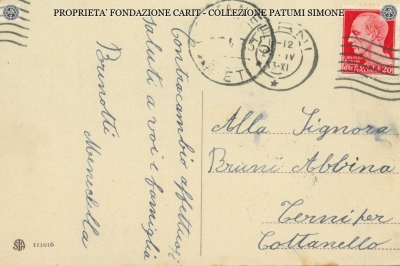 PROPRIETA' FONDAZIONE CARIT - COLLEZIONE PATUMI SIMONE
Contracambio affettuosi
saluti a voi e famiglia
Brunotti
Menichella
Alla Signora
Bruni Albina
Terni per
Cottanello
12
IV
XI
20
111016